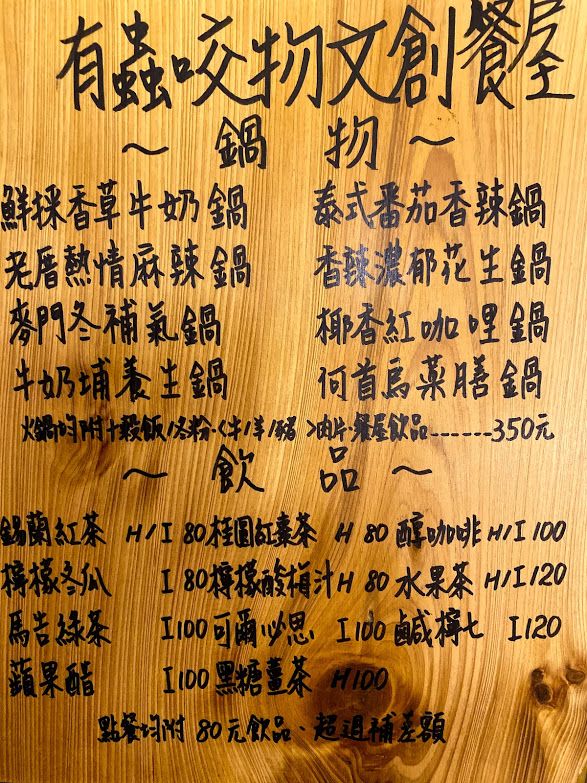 有蟲咬物文創餐屋
～ 鍋 物 ～
鮮採香草牛奶鍋 泰式番茄香辣鍋
老厝熱情麻辣鍋 香辣濃郁花生鍋
麥門冬補氣鍋 椰香紅咖哩鍋
牛奶埔養生鍋 何首烏藥膳鍋
火鍋均附十穀飯/冬粉.<牛/羊/豬>肉片.餐屋飲品------350元
～ 飲 品 ～
錫蘭紅茶 H/I 80 桂圓紅棗茶 H 80 醇咖啡 H/I 100
檸檬冬瓜 I 80 檸檬酸梅汁 H 80 水果茶 H/I 120
馬告綠茶 I 100 可爾必思 I 100 鹹檸七 I 120
蘋果醋 I 100 黑糖薑茶 H 100
點餐均附 80元飲品、超過補差額